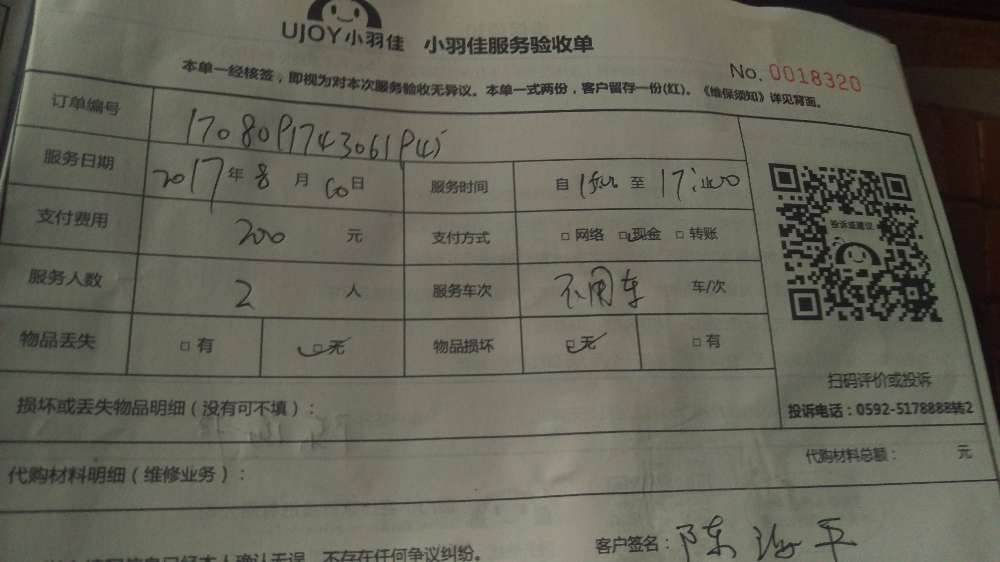 UJOY小羽佳 小羽佳服务验收单
No. 0018320
本单一经核签，即视为对本次服务验收无异议。本单一式两份，客户留存一份(红)。《维保须知》详见背面。
订单编号
服务日期 2017年8月 日 服务时间 自 至 17:00
支付费用 200 元 支付方式 □网络 □现金 □转账
服务人数 2 人 服务车次 不用车 车/次
物品丢失 □有 □无 物品损坏 □无 □有
投诉或建议
扫码评价或投诉
投诉电话：0592-5178888转2
损坏或丢失物品明细（没有可不填）：
代购材料明细（维修业务）：
代购材料总额： 元
已经本人确认无误，不存在任何争议纠纷。
客户签名：陈海平